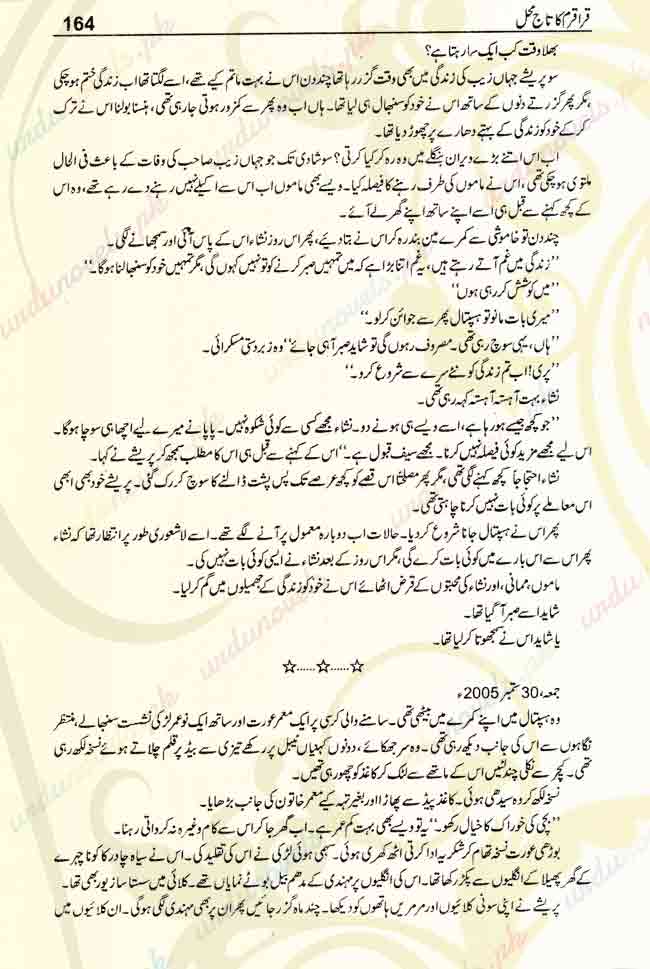 قراقرم کا تاج محل
164
بھلا وقت کب ایک سا رہتا ہے؟
سو پریشے جہاں زیب کی زندگی میں بھی وقت گزر رہا تھا چند دن اس نے بہت ماتم کیے تھے، اسے لگتا تھا اب زندگی ختم ہو چکی
، مگر پھر گزرتے دنوں کے ساتھ اس نے خود کو سنبھال ہی لیا تھا۔ ہاں اب وہ پھر سے کمزور ہوتی جا رہی تھی، ہنسنا بولنا اس نے ترک
کر کے خود کو زندگی کے بہتے دھارے پر چھوڑ دیا تھا۔
اب اس اتنے بڑے ویران بنگلے میں وہ رہ کر کیا کرتی؟ سو شادی تک جو جہاں زیب صاحب کی وفات کے باعث فی الحال
ملتوی ہو چکی تھی، اس نے ماموں کی طرف رہنے کا فیصلہ کیا۔ ویسے بھی ماموں اب اس سے اکیلے نہیں رہنے دے رہے تھے، وہ اس
کے کچھ کہنے سے قبل ہی اسے اپنے ساتھ اپنے گھر لے آئے۔
چند دن تو خاموشی سے کمرے مین بند رہ کر اس نے بتا دیے، پھر اس روز نشاء اس کے پاس آئی اور سمجھانے لگی۔
”زندگی میں غم آتے رہتے ہیں، یہ غم اتنا بڑا ہے کہ میں تمہیں صبر کرنے کو تو نہیں کہوں گی، مگر تمہیں خود کو سنبھالنا ہوگا۔“
”میں کوشش کر رہی ہوں“
”میری بات مانو تو ہسپتال پھر سے جوائن کر لو۔“
”ہاں، یہی سوچ رہی تھی۔ مصروف رہوں گی تو شاید صبر آ ہی جائے“ وہ زبردستی مسکرائی۔
”پری! اب تم زندگی کو نئے سرے سے شروع کر دو۔“
نشاء بہت آہستہ آہستہ کہہ رہی تھی۔
”جو کچھ جیسے ہو رہا ہے، اسے ویسے ہی ہونے دو۔ نشاء مجھے کسی سے کوئی شکوہ نہیں۔ پاپا نے میرے لیے اچھا ہی سوچا ہوگا۔
اس لیے مجھے مزید کوئی فیصلہ نہیں کرنا۔ مجھے سیف قبول ہے۔“ اس کے کہنے سے قبل ہی اس کا مطلب سمجھ کر پریشے نے کہا۔
نشاء احتجاجاً کچھ کہنے لگی تھی، مگر پھر مصلحتاً اس قصے کو کچھ عرصے تک پس پشت ڈالنے کا سوچ کر رک گئی۔ پریشے خود بھی ابھی
اس معاملے پر کوئی بات نہیں کرنا چاہتی تھی۔
پھر اس نے ہسپتال جانا شروع کر دیا۔ حالات اب دوبارہ معمول پر آنے لگے تھے۔ اسے لاشعوری طور پر انتظار تھا کہ نشاء
پھر اس سے اس بارے میں کوئی بات کرے گی، مگر اس روز کے بعد نشاء نے ایسی کوئی بات نہیں کی۔
ماموں، ممانی، اور نشاء کی محبتوں کے قرض اٹھائے اس نے خود کو زندگی کے جھمیلوں میں گم کر لیا۔
شاید اسے صبر آ گیا تھا۔
یا شاید اس نے سمجھوتا کر لیا تھا۔
☆......☆......☆
جمعہ، 30 ستمبر 2005ء
وہ ہسپتال میں اپنے کمرے میں بیٹھی تھی۔ سامنے والی کرسی پر ایک معمر عورت اور ساتھ ایک نو عمر لڑکی نشست سنبھالے، منتظر
نگاہوں سے اس کی جانب دیکھ رہی تھی۔ وہ سر جھکائے، دونوں کہنیاں ٹیبل پر رکھے تیزی سے پیڈ پر قلم چلاتے ہوئے نسخہ لکھ رہی
تھی۔ کیچر سے نکلی چند لٹیں اس کے ماتھے سے لٹک کر کاغذ کو چھو رہی تھیں۔
نسخہ لکھ کر وہ سیدھی ہوئی۔ کاغذ پیڈ سے پھاڑا اور بغیر تہہ کیے معمر خاتون کی جانب بڑھایا۔
”بچی کی خوراک کا خیال رکھو۔“ یہ تو ویسے بھی بہت کم عمر ہے۔ اب گھر جا کر اس سے کام وغیرہ نہ کرواتی رہنا۔
بوڑھی عورت نسخہ تھام کر شکریہ ادا کرتی اٹھ کھڑی ہوئی۔ سہمی ہوئی لڑکی نے اس کی تقلید کی۔ اس نے سیاہ چادر کا کونا چہرے
کے گھر پھیلا کے انگلیوں سے پکڑ رکھا تھا۔ اس کی انگلیوں پر مہندی کے مدھم بیل بوٹے نمایاں تھے۔ کلائی میں سستا سا زیور بھی تھا۔
پریشے نے اپنی سونی کلائیوں اور مرمریں ہاتھوں کو دیکھا۔ چند ماہ گزر جائیں پھر ان پر بھی مہندی لگی ہوگی۔ ان کلائیوں میں
urdunovels.pk